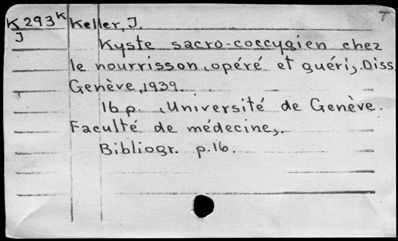 K293K Keller, J. T
J Kyste sacro-coccygien chez
le nourrisson opéré et guéri, Diss.
Genève, 1939.
16 p. Université de Genève.
Faculté de médecine,.
Bibliogr. p.16.